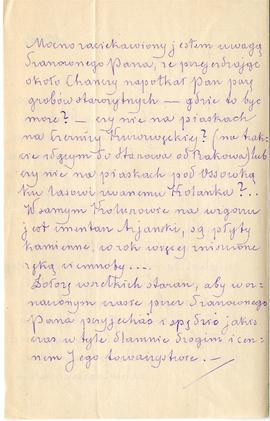 Mocno zaciekawiony jestem uwagą
Szanownego Pana, że przejeżdżając
około Chańczy napotkał Pan parę
grobów starożytnych — gdzie to być
może? — czy nie na piaskach
na Czernicy Kurozwęckiej? (na trak-
cie idącym do Staszowa od Rakowa) lub
czy nie na piaskach pod Ossówką
ku lasowi zwanemu Krolanka?..
W samym Kotuszowie na wzgórzu
jest cmentarz Aryjański, są płyty
kamienne, co rok więcej zniszczone
ręką ciemnoty...
Dołożę wszelkich starań, aby w o-
znaczonym czasie przez Szanownego
Pana przyjechać i spędzić jakiś
czas w tyle dla mnie drogim i cen-
nem Jego towarzystwie. —